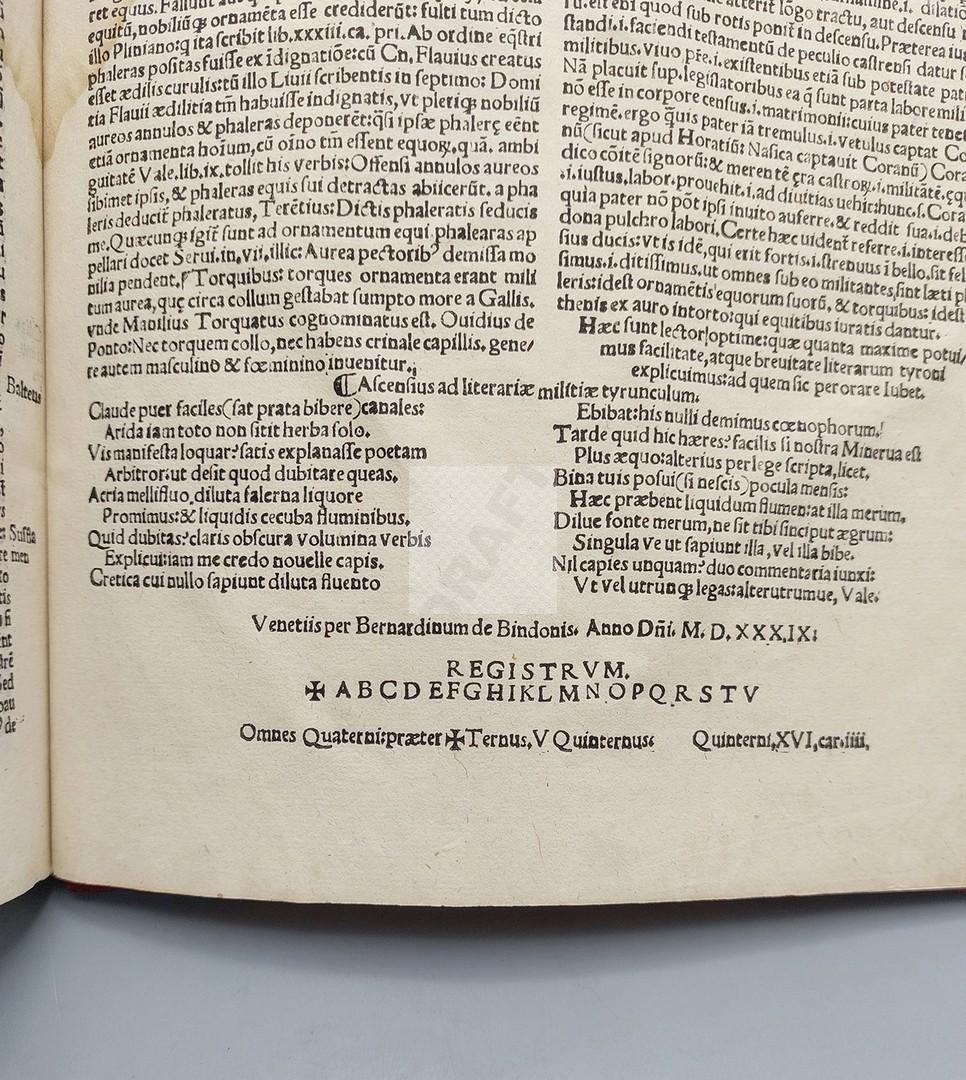 equitũ, nobiliũq; ornamẽta esse crediderũt: fulti tum dicto
illo Pliniano: q ita scribit lib. xxxiii. ca. pri. Ab ordine eq̃stri
phaleras positas fuisse ex ĩdignatiõe: cũ Cn. Flauius creatus
esset ædilis curulis: tũ illo Liuii scribentis in septimo: Domi
tia Flauii ædilitia tm̃ habuisse indignatis, vt pleriq; nobiliũ
aureos annulos & phaleras deponerẽt: q̃si ipsæ phalerę eẽnt
etiã ornamenta hoium, cũ oĩno tm̃ essent equoꝝ, quã. ambi
guitatẽ Vale. lib. ix. tollit his verbis: Offensi annulos aureos
sibimet ipsis, & phaleras equis sui detractas abiicerũt. a pha
leris deducit̃ phaleratus, Terẽtius: Dictis phaleratis seducis
me. Quæcunq; igit̃ sunt ad ornamentum equi phalearas ap
pellari docet Serui. in. vii. illic: Aurea pectorib⁹ demissa mo
nilia pendent. Torquibus: torques ornamenta erant mili
tum aurea, quę circa collum gestabat sumpto more a Gallis.
vnde Manlius Torquatus cognominatus est. Ouidius de
Ponto: Nec torquem collo, nec habens crinale capillis. gene/
re autem masculino & fœminino inuenitur.
standi. i. faciendi testamẽtũ de peculio castrensi datur
militibus. viuo pr̃e. i. existentibus etiã sub potestate
Nã placuit sup. legislatoribus ea q̃ sunt parta labore
nõ esse in corpore census. i. matrimonii: cuius pater
regimẽ. ergo q̃uis pater iã tremulus. i. vetulus captat
nũ (sicut apud Horatiũ: Nasica captauit Coranũ)
dico cõitẽ signorũ: & merentẽ ęra castroꝝ. i. militãtẽ.
. i. iustus. labor. prouehit. i. ad diuitias uehit: hunc. s.
quia pater nõ põt ipsi inuito auferre. & reddit sua. i.
dona pulchro labori. Certe hæc uident̃ referre. i.
sius ducis: vt is idẽ, qui erit fortis. i. strenuus ĩ bello. sit
simus. i. ditissimus. ut omnes sub eo militantes, sint læti
leris: idest ornamẽtis equorum suorũ, & torquibus: idest
thenis ex auro intorto: qui equitibus iuratis dantur.
Hæc sunt lector optime: quæ quanta maxime potui/
mus facilitate, atque breuitate literarum tyroni
explicuimus: ad quem sic perorare lubet.
Balteus
℄ Ascensius ad literariæ militiæ tyrunculum.
Claude puer faciles (sat prata bibere) canales:
Arida iam toto non sitit herba solo.
Vis manifesta loquar? satis explanasse poetam
Arbitror: ut desit quod dubitare queas.
Acria mellifluo diluta falerna liquore
Promimus: & liquidis cecuba fluminibus.
Quid dubitas? claris obscura volumina verbis
Explicui: iam me credo nouelle capis.
Cretica cui nullo sapiunt diluta fluento
Ebibat: his nulli demimus cœnophorum.
Tarde quid hic hæres? facilis si nostra Minerua est
Plus æquo: alterius perlege scripta, licet.
Bina tuis posui (si nescis) pocula mensis:
Hæc præbent liquidum flumen: at illa merum.
Dilue fonte merum, ne sit tibi sinciput ægrum:
Singula ve ut sapiunt illa, vel illa bibe.
Nil capies unquam? duo commentaria iunxi:
Vt vel utrunq; legas: alterutrumue, Vale.
Venetiis per Bernardinum de Bindonis. Anno Dñi. M. D. XXXIX.
REGISTRVM.
✠ A B C D E F G H I K L M N O P Q R S T V
Omnes Quaterni: præter ✠ Ternus. V Quinternus. Quinterni. XVI. car. iiii.